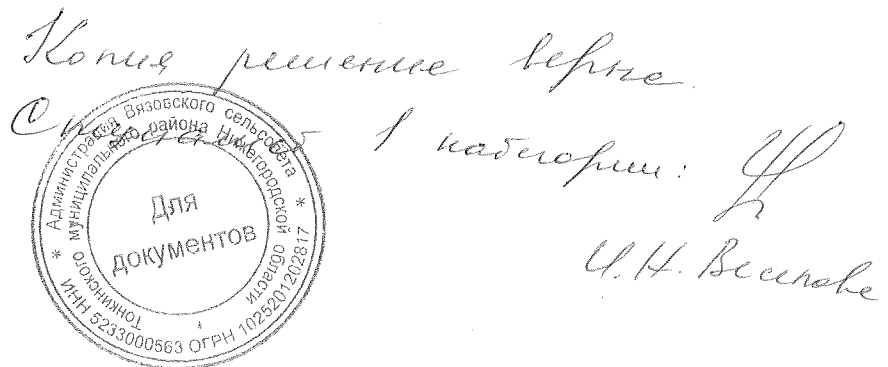 Копия решение верна.
Специалист 1 категории:
И.Н. 
* Администрация Вязовского сельсовета *
Тонкинского муниципального района Нижегородской области
*
ИНН 5233000563 ОГРН 1025201202817
Для
документов